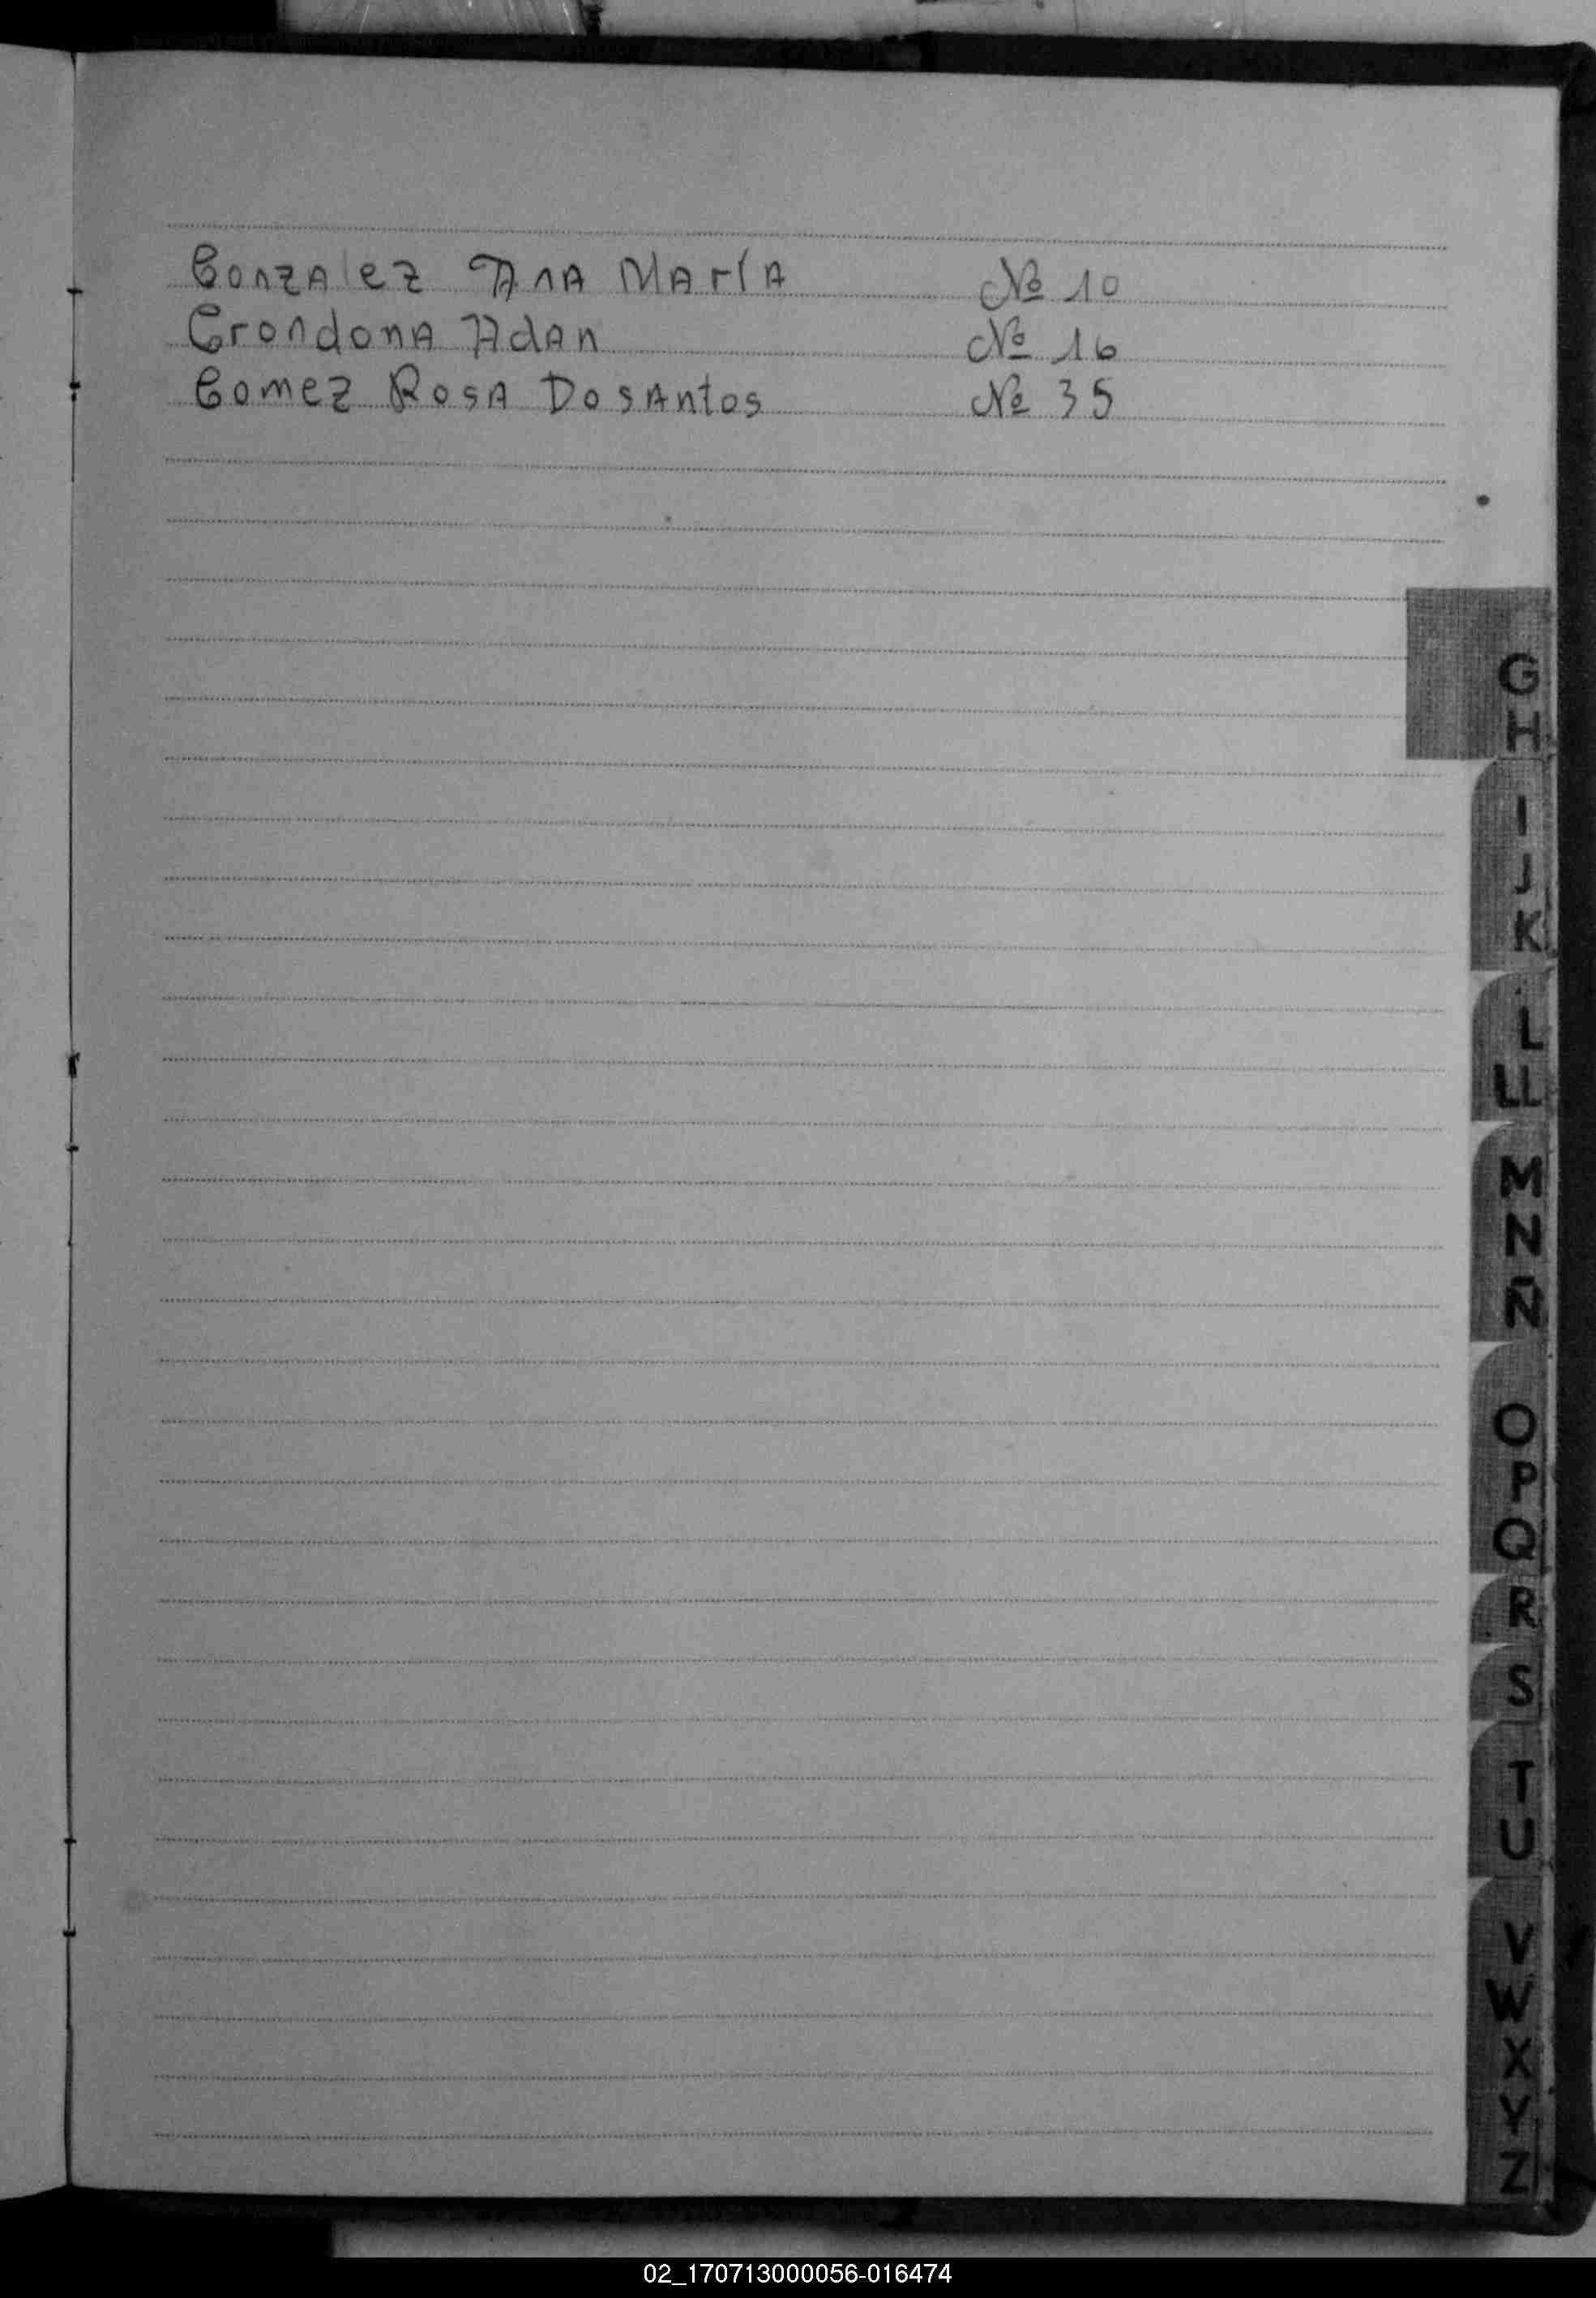 Gonzalez Ana María Nº 10
Grondona Adan Nº 16
Gomez Rosa Dosantos Nº 35
G
H
I
J
K
L
LL
M
N
Ñ
O
P
Q
R
S
T
U
V
W
X
Y
Z
02_170713000056-016474